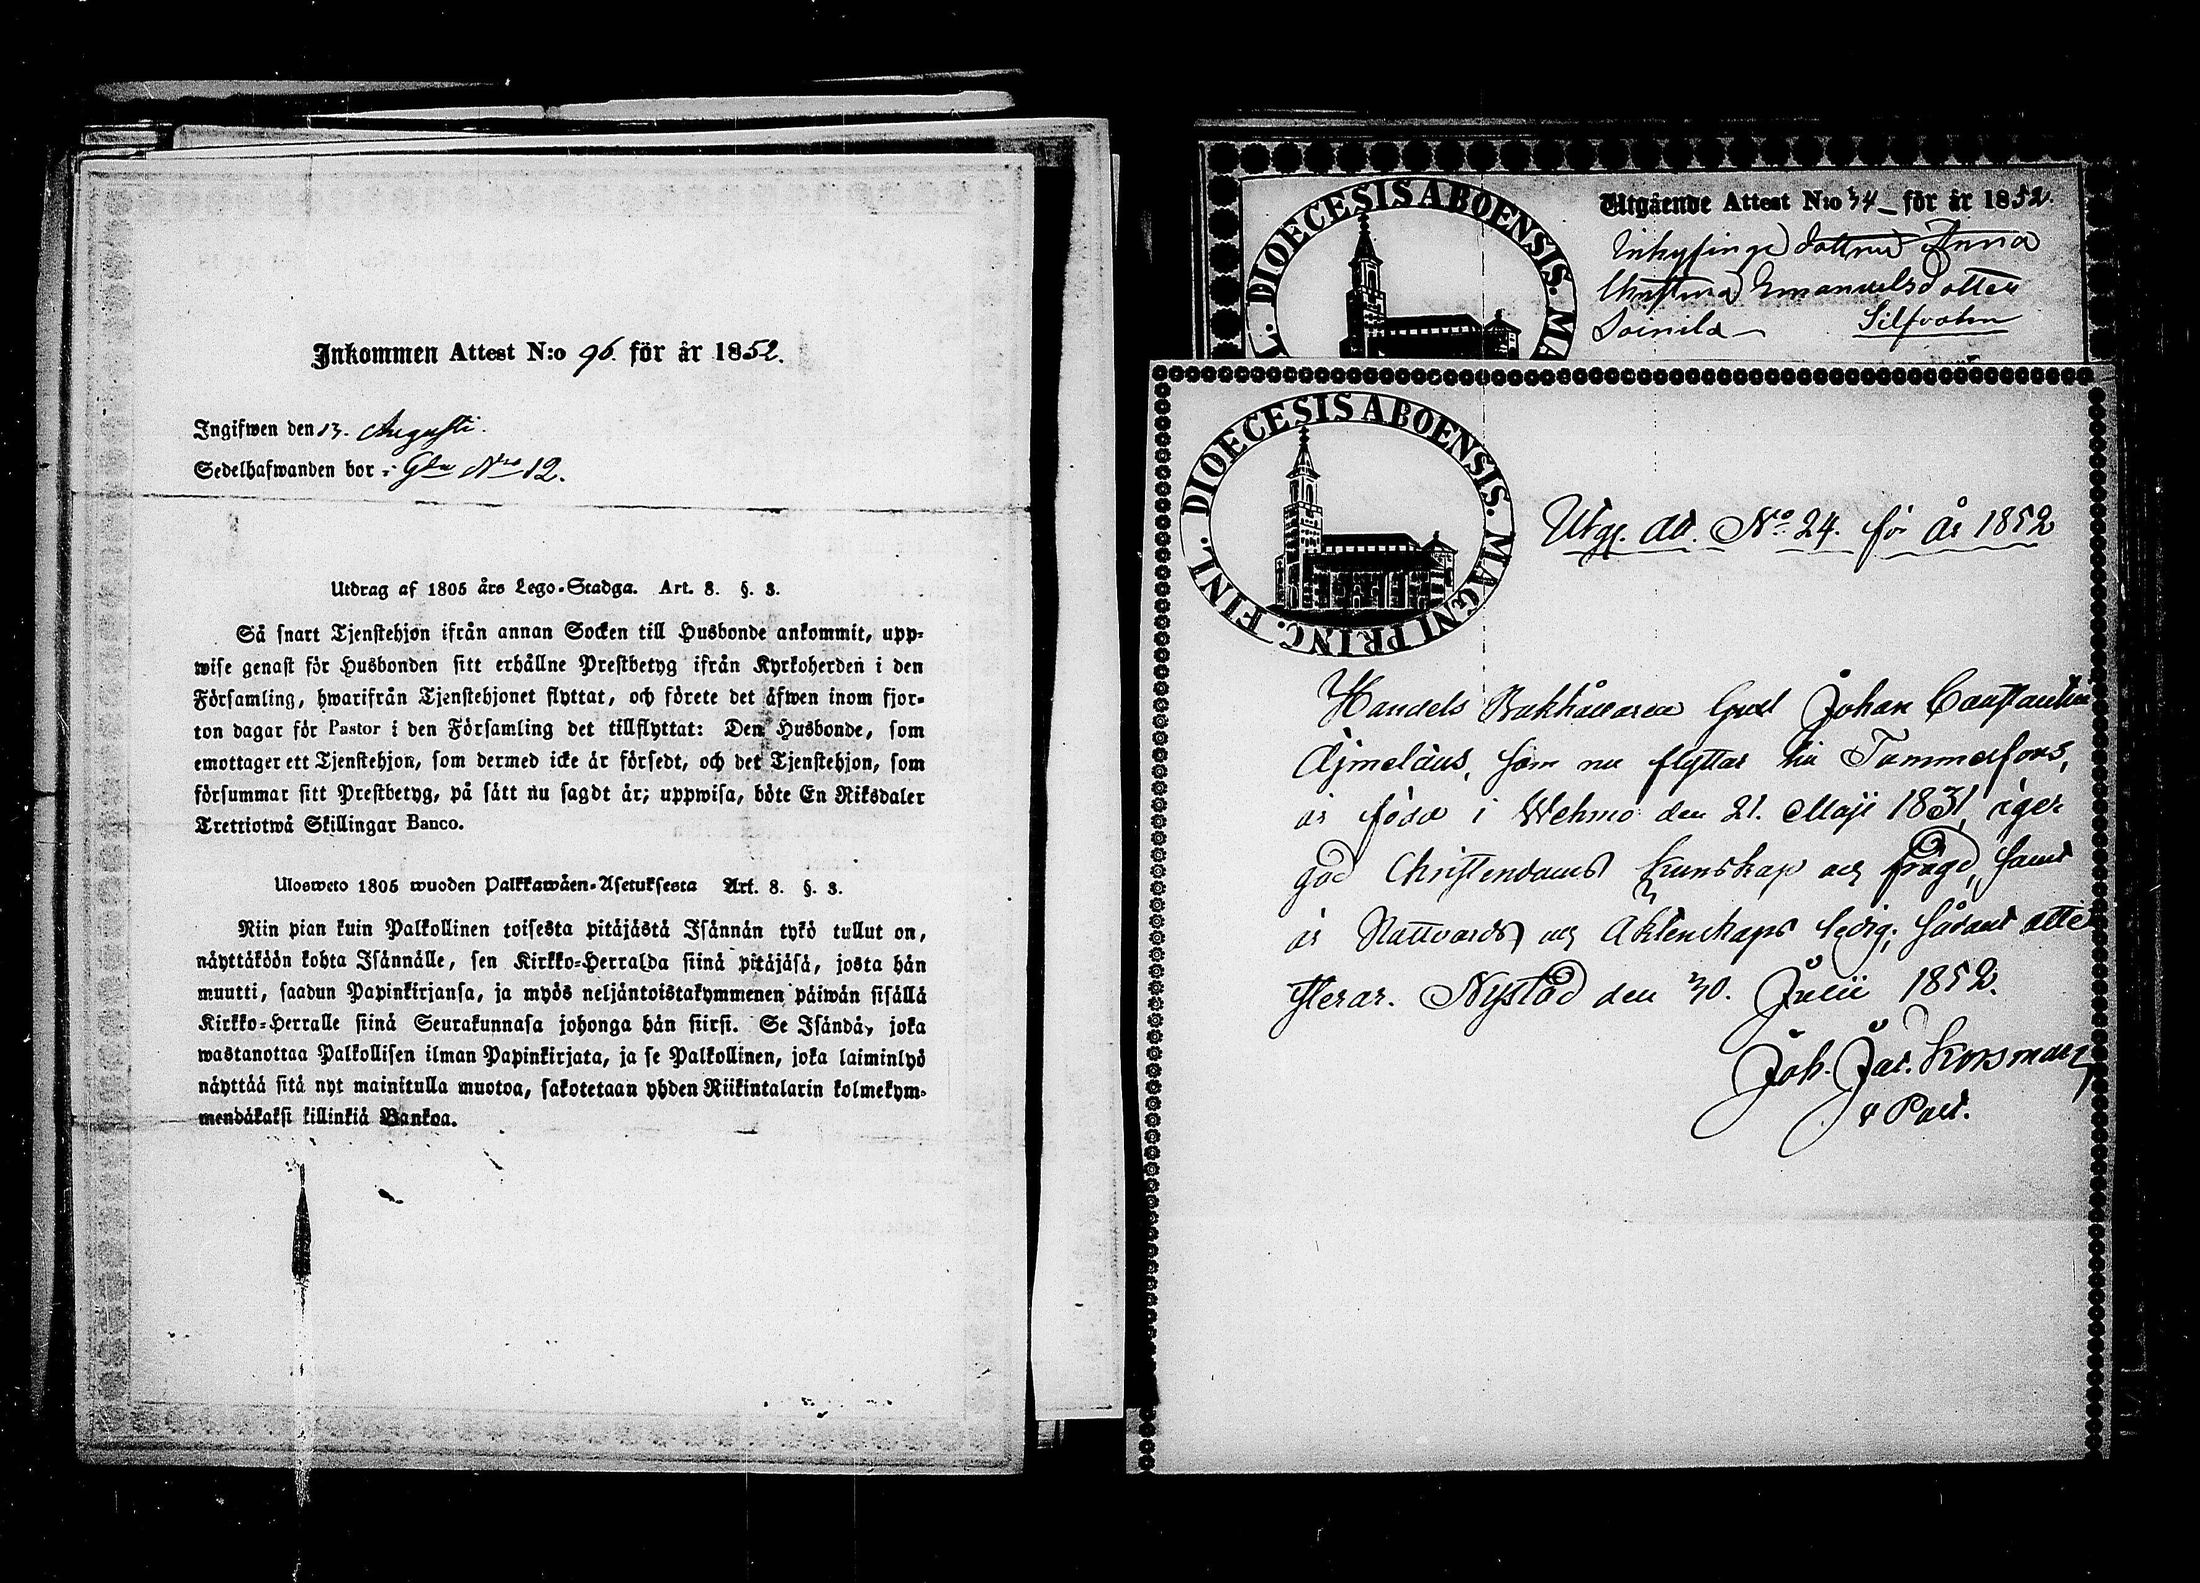 Inkommen Attest N:o 96. för år 1852.
Ingifwen den 13. Augusti.
Sedelhafwanden bor :  N:o 12.
Utdrag af 1805 års Lego-Stadga. Art. 8. §. 3.
Så snart Tjenstehjon ifrån annan Socken till Husbonde ankommit, upp-
wise genast för Husbonden sitt erhållne Prestbetyg ifrån Kyrkoherden i den
Församling, hwarifrån Tjenstehjonet flyttat, och förete det äfwen inom fjor-
ton dagar för Pastor i den Församling det tillflyttat: Den Husbonde, som
emottager ett Tjenstehjon, som dermed icke är försedt, och det Tjenstehjon, som
försummar sitt Prestbetyg, på sätt nu sagdt är; uppwisa, böte En Riksdaler
Trettiotwå Skillingar Banco.
Ulosweto 1805 wuoden Palkkawäen-Asetuksesta Art. 8. §. 3.
Niin pian kuin Palkollinen toisesta pitäjästä Isännän tykö tullut on,
näyttäköön kohta Isännälle, sen Kirkko-Herralda siinä pitäjäsä, josta hän
muutti, saadun Papinkirjansa, ja myös neljäntoistakymmenen päiwän sisällä
Kirkko-Herralle siinä Seurakunnasa johonga hän siirsi. Se Isändä, joka
wastanottaa Palkollisen ilman Papinkirjata, ja se Palkollinen, joka laiminlyö
näyttää sitä nyt mainitulla muotoa, sakotetaan yhden Riikintalarin kolmekym-
mendäkaksi killinkiä Bankoa.
DIOECESIS ABOENSIS. MA
L.
Utgående Attest N:o 34 för år 1852.
Inhysinge dottren Anna
Christina Emanuelsdotter
Soinila
DIOECESIS ABOENSIS. MAGNI PRINC. FINL.
Utg. Att. No. 24. för År 1852
Handels Bokhållaren Johan Constantin
Äjmeläus, som nu flyttar till Tammerfors,
är född i Wehmo den 21. Maji 1831, äger
god Christendoms kunskap och frägd, samt
är Nattvards och Äktenskaps ledig; sådant atte-
sterar. Nystad den 30. Julii 1852.
Joh. Jac. Korsman
v Past.